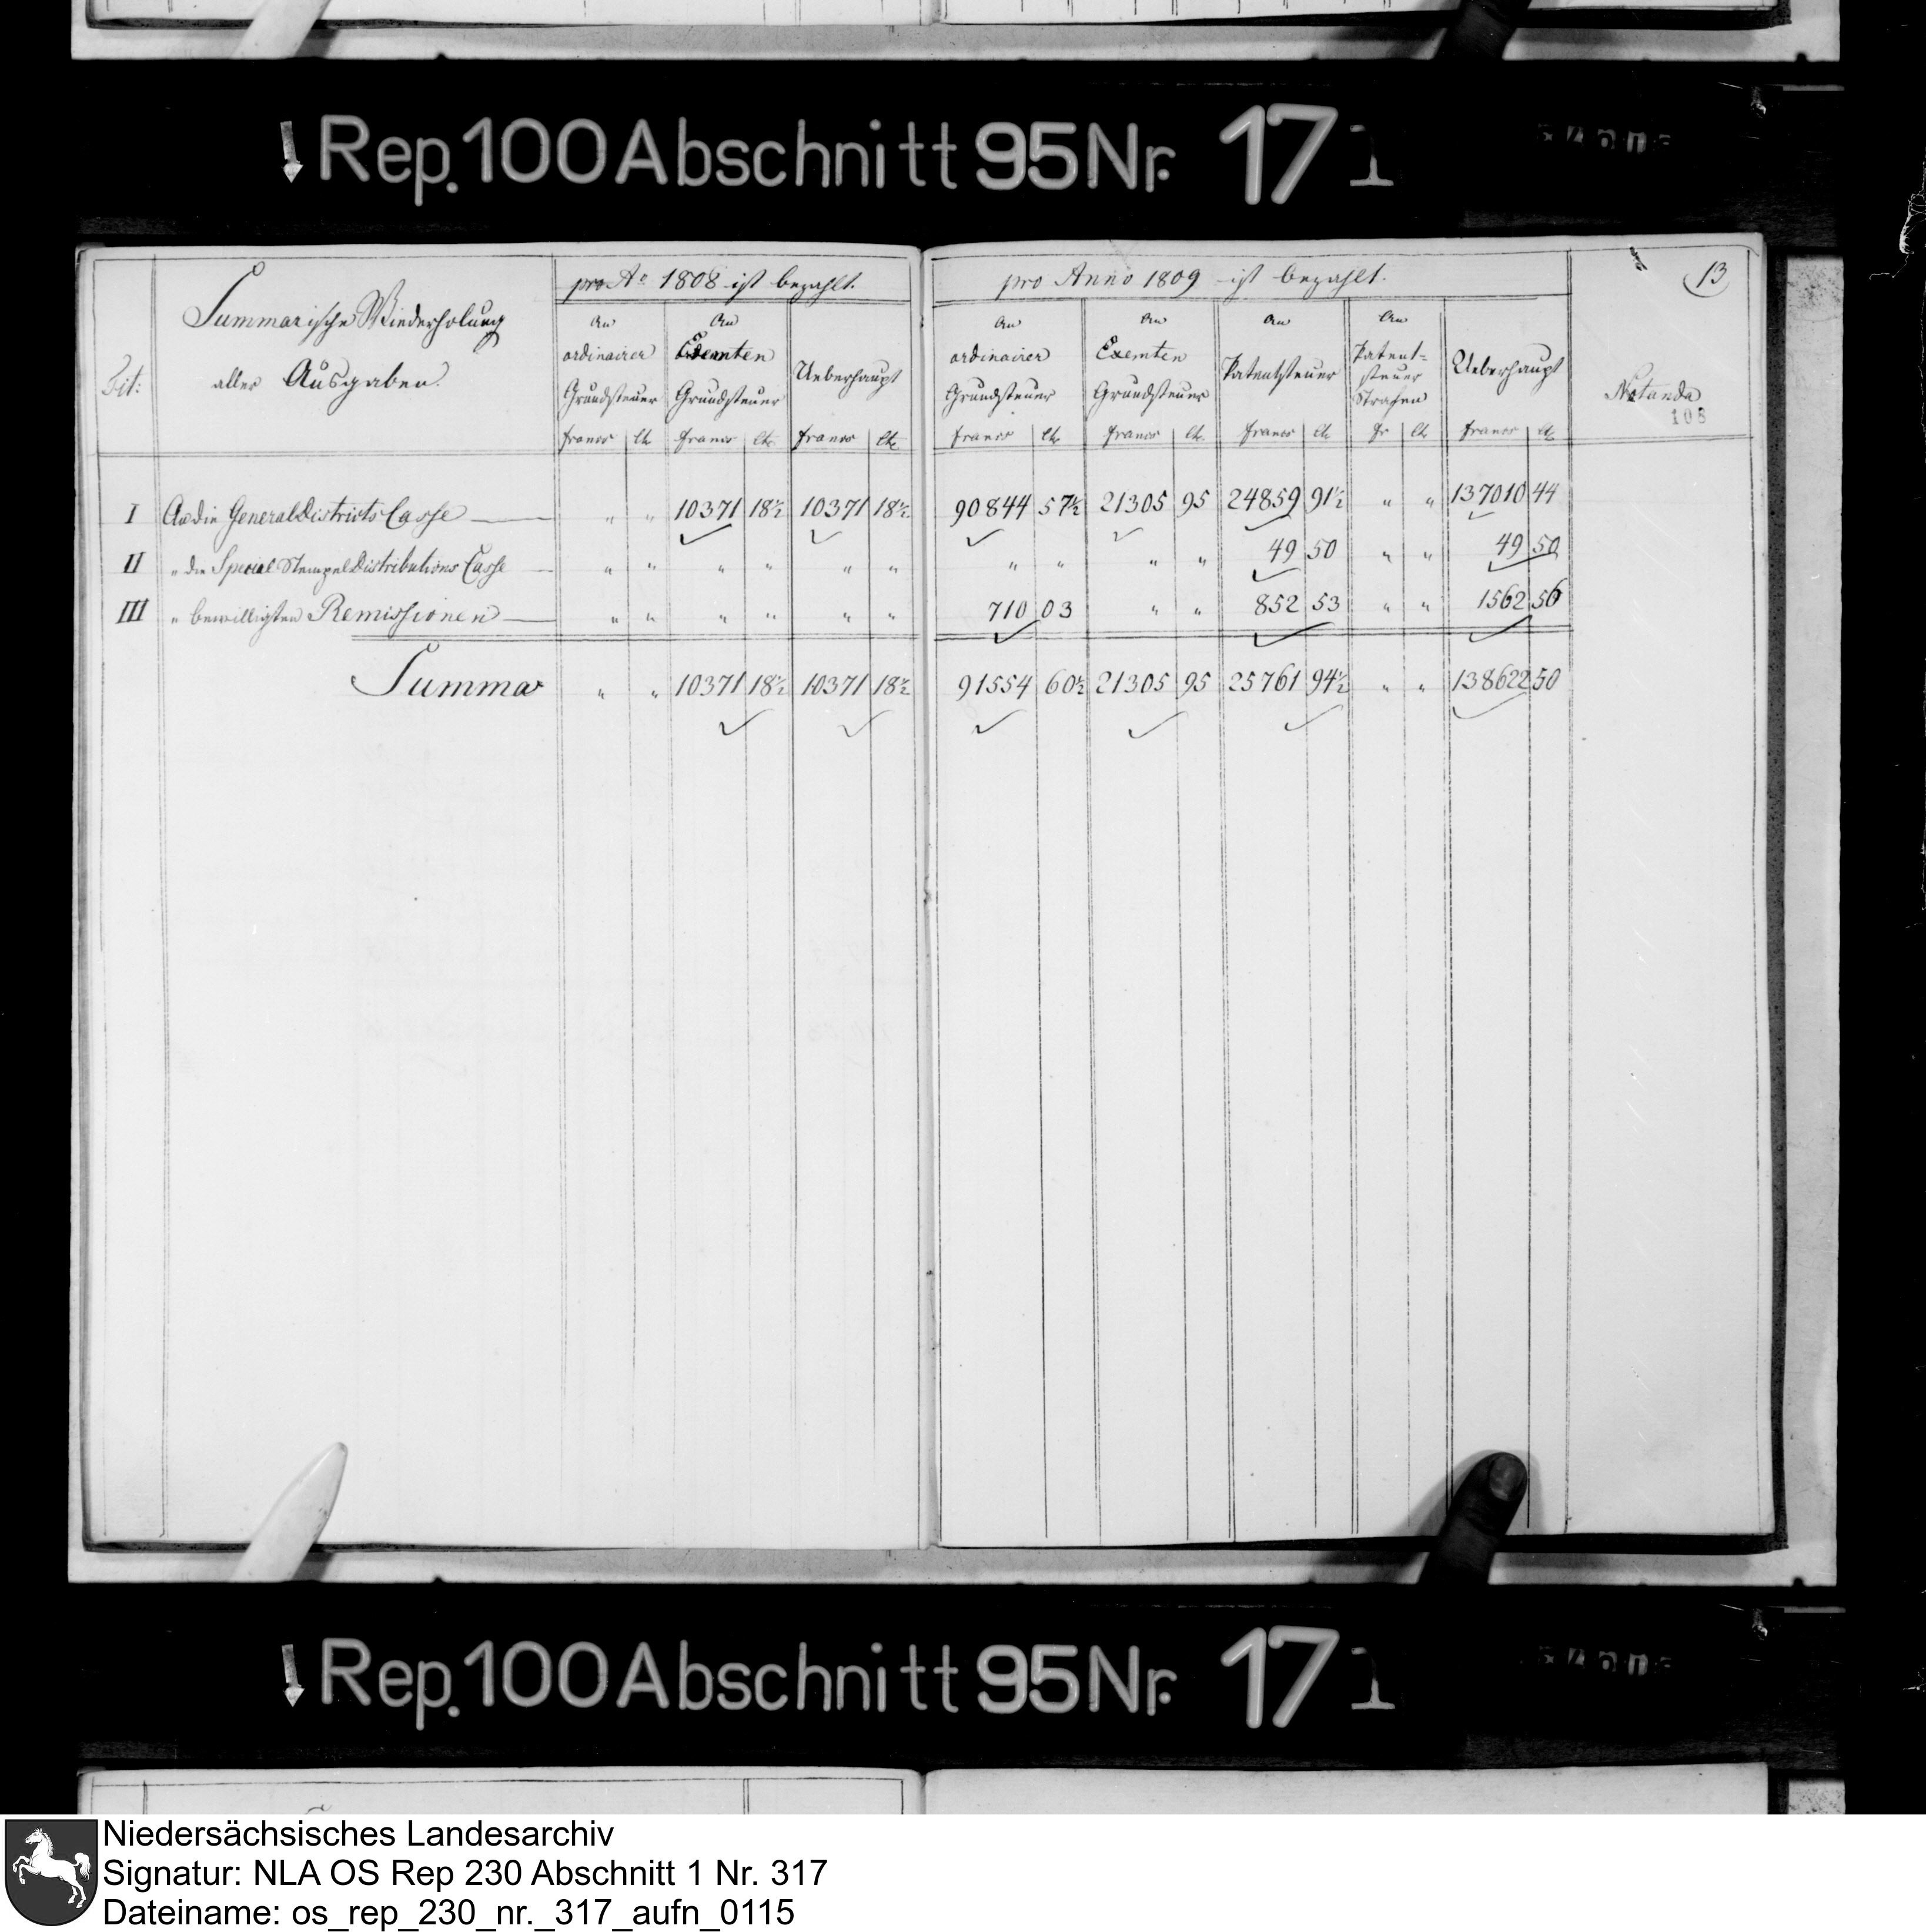 Rep. 100 Abschnitt 95 Nr. 17 1
Summarische Wiederholung
aller Ausgaben.
Tit:
pro Ao 1808 ist bezahlt.
An ordinairer Grundsteuer
francs | Ct.
An Exemten Grundsteuer
francs | Ct.
Ueberhaupt
francs | Ct.
pro Anno 1809 ist bezahlt.
An ordinairer Grundsteuer
francs | Ct.
An Exemten Grundsteuer
francs | Ct.
An Patentsteuer
francs | Ct.
An Patent= steuer Strafen
fr | Ct.
Ueberhaupt
francs | Ct.
13
Notanda
108
I An die General Districts Casse — " " 10371 18½ 10371 18½ 90844 57½ 21305 95 24859 91½ " " 137010 44
II " die Special Stempel Distributions Casse — " " " " " " " " " " 49 50 " " 49 50
III " bewilligten Remissionen — " " " " " " 710 03 " " 852 53 " " 1562 56
Summa " " 10371 18½ 10371 18½ 91554 60½ 21305 95 25761 94½ " " 138622 50
Rep. 100 Abschnitt 95 Nr. 17 1
Niedersächsisches Landesarchiv
Signatur: NLA OS Rep 230 Abschnitt 1 Nr. 317
Dateiname: os_rep_230_nr._317_aufn_0115